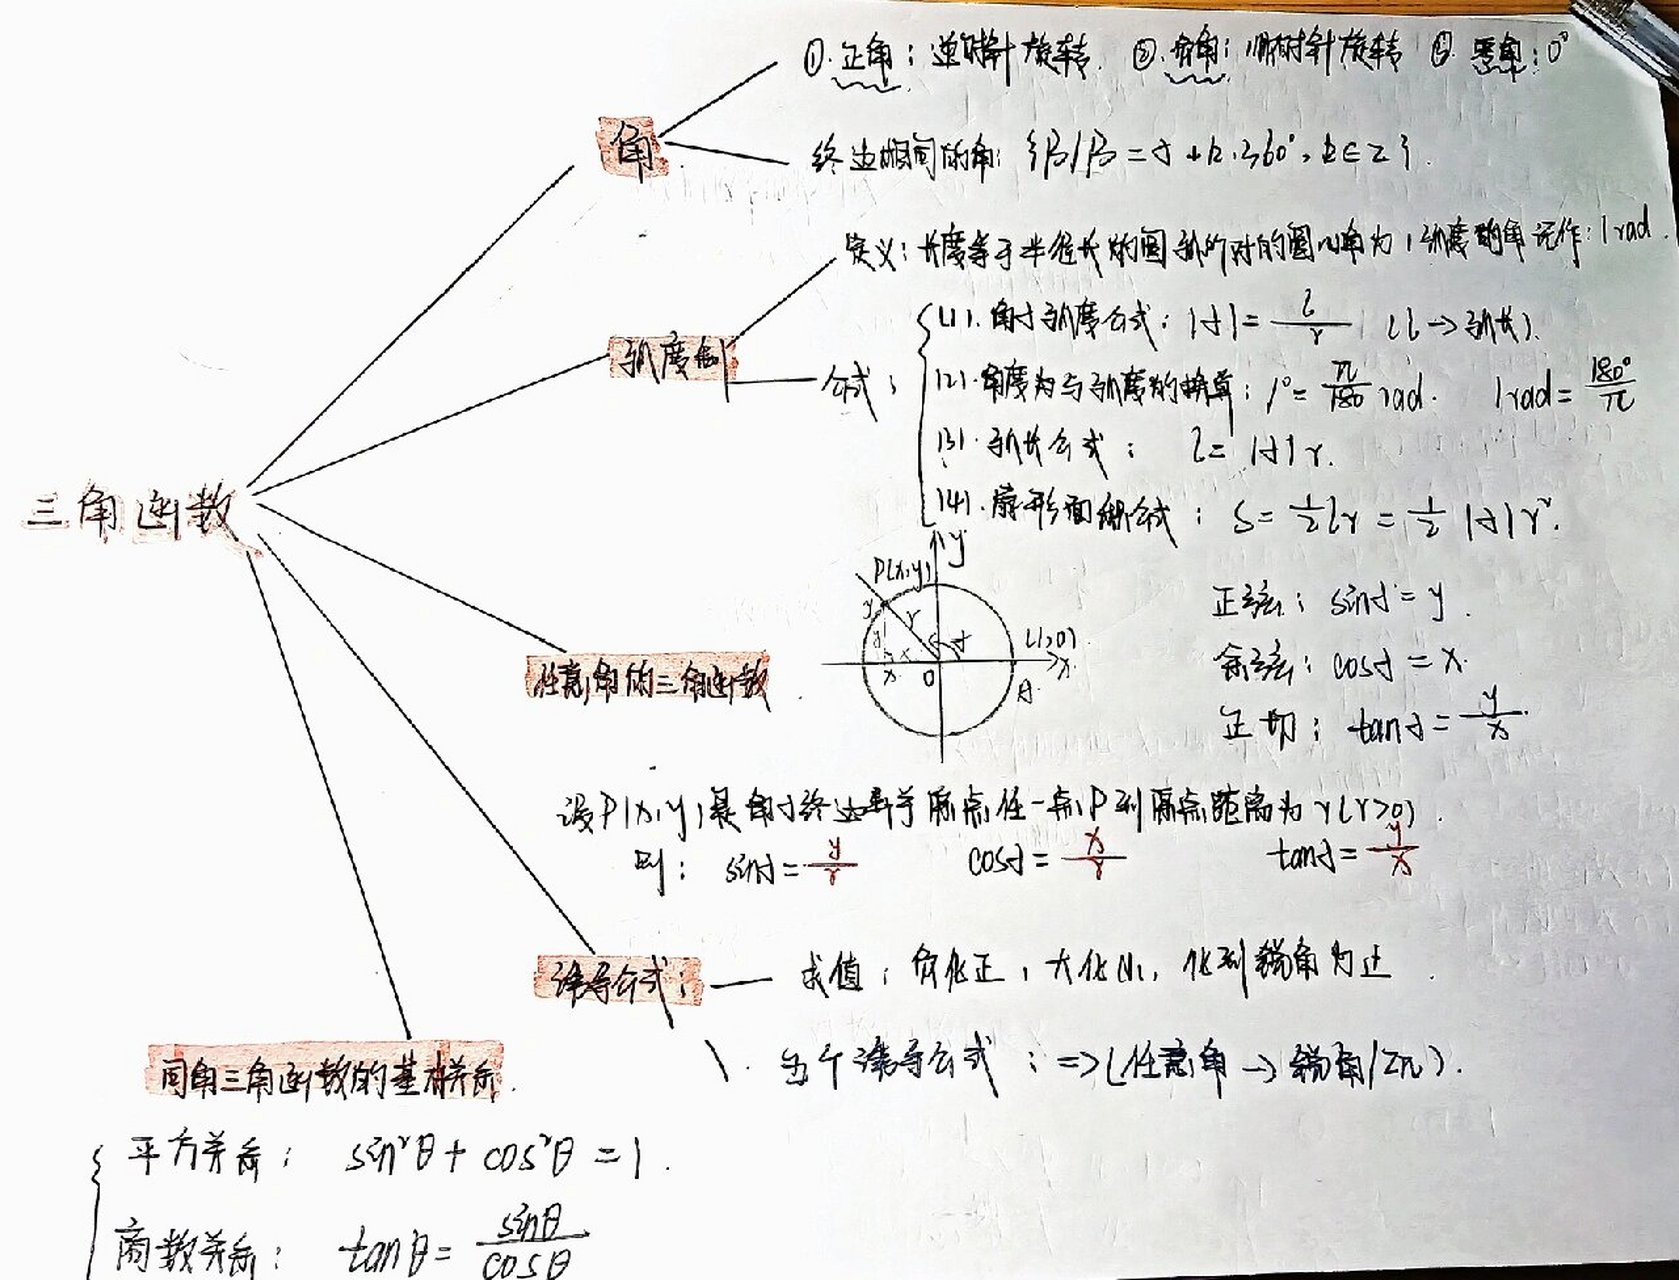 三角函数
角
①.正角：逆时针旋转. ②.负角：顺时针旋转 ③.零角：0°
终边相同的角：{β|β=α+k·360°，k∈Z}.
弧度制
定义：长度等于半径长的圆弧所对的圆心角为1弧度的角 记作：1rad.
公式：
(1).角α弧度公式：|α|=l/r (l→弧长).
(2).角度与弧度的换算：1°=π/180 rad. 1rad=180°/π
(3).弧长公式：l=|α|r.
(4).扇形面积公式：S=1/2 lr=1/2|α|r².
任意角的三角函数
y
P(x,y)
y
r
y
x
α
(1,0)
x
x
O
A.
正弦：sinα=y.
余弦：cosα=x.
正切：tanα=y/x.
设P(x,y)是角α终边异于原点任一点,P到原点距离为r(r>0).
则：sinα=y/r cosα=x/r tanα=y/x
诱导公式：
求值：负化正，大化小，化到锐角为止.
五个诱导公式：=>(任意角→锐角/2π).
同角三角函数的基本关系.
平方关系：sin²θ+cos²θ=1.
商数关系：tanθ=sinθ/cosθ